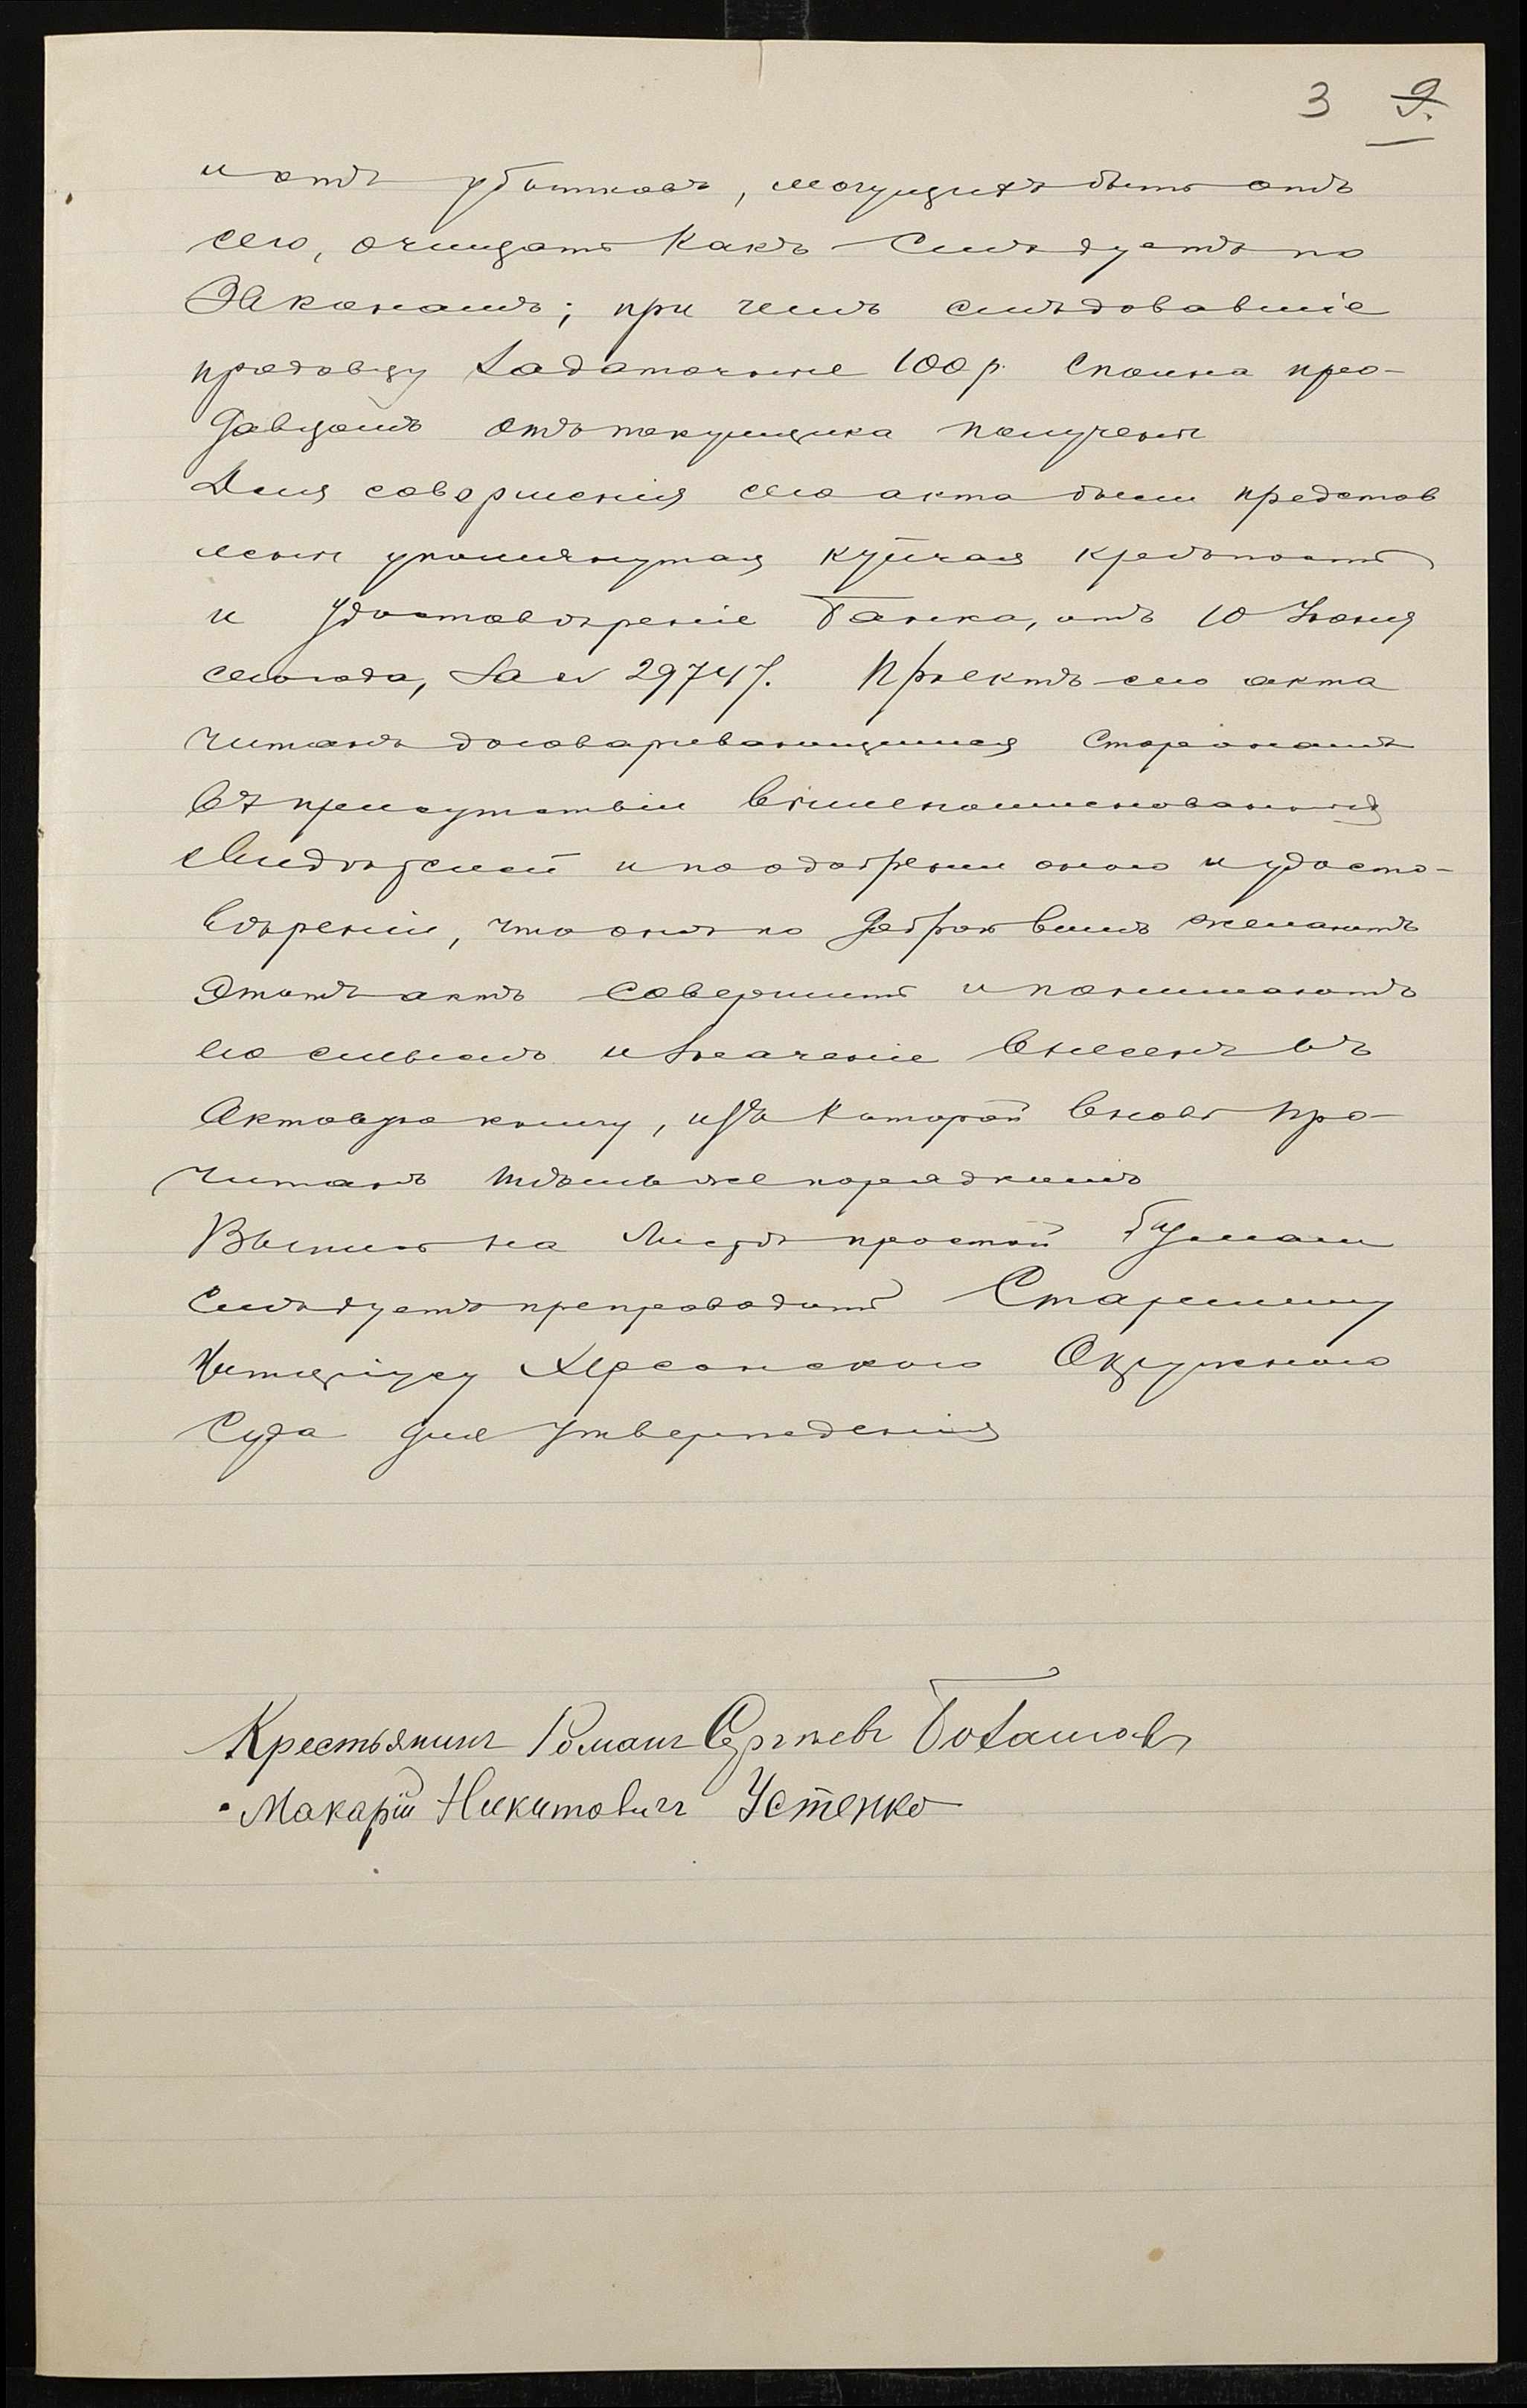 3 9.
и отъ убытковъ, могущихъ быть отъ
сего, очищать какъ слѣдуетъ по
Законамъ; при чемъ слѣдовавшіе
продавцу задаточные 100 р. сполна про-
давцомъ отъ покупщика получены
Для совершенія сего акта были представ
лены упомянутая купчая крѣпость
и удостовѣреніе Банка, отъ 10 Іюня
сего года, за № 29747. Проектъ сего акта
читанъ договаривающимся сторонамъ
въ присутствіи вышепоименованныхъ
свидѣтелей и по одобреніи онаго и удосто-
вѣреніи, что они по доброй волѣ желаютъ
этотъ актъ совершить и понимаютъ
его смыслъ и значеніе внесенъ въ
Актовую книгу, изъ которой вновь про-
читанъ тѣмъ же порядкомъ
Выпись на листѣ простой бумаги
слѣдуетъ препроводить Старшему
Нотаріусу Херсонскаго Окружного
Суда для утвержденія
Крестьянинъ Романъ Сергѣевъ
Макарій Никитовичъ Устенко